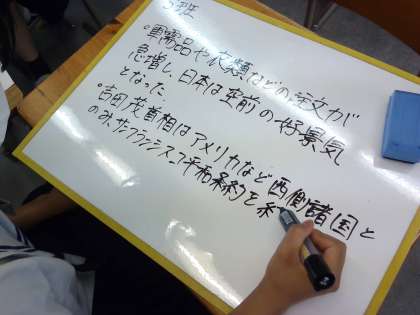 5班
・軍需品や衣類などの注文が
急増し、日本は空前の好景気
となった
・吉田茂首相はアメリカなど西側諸国と
のみ、サンフランシスコ平和条約を糸